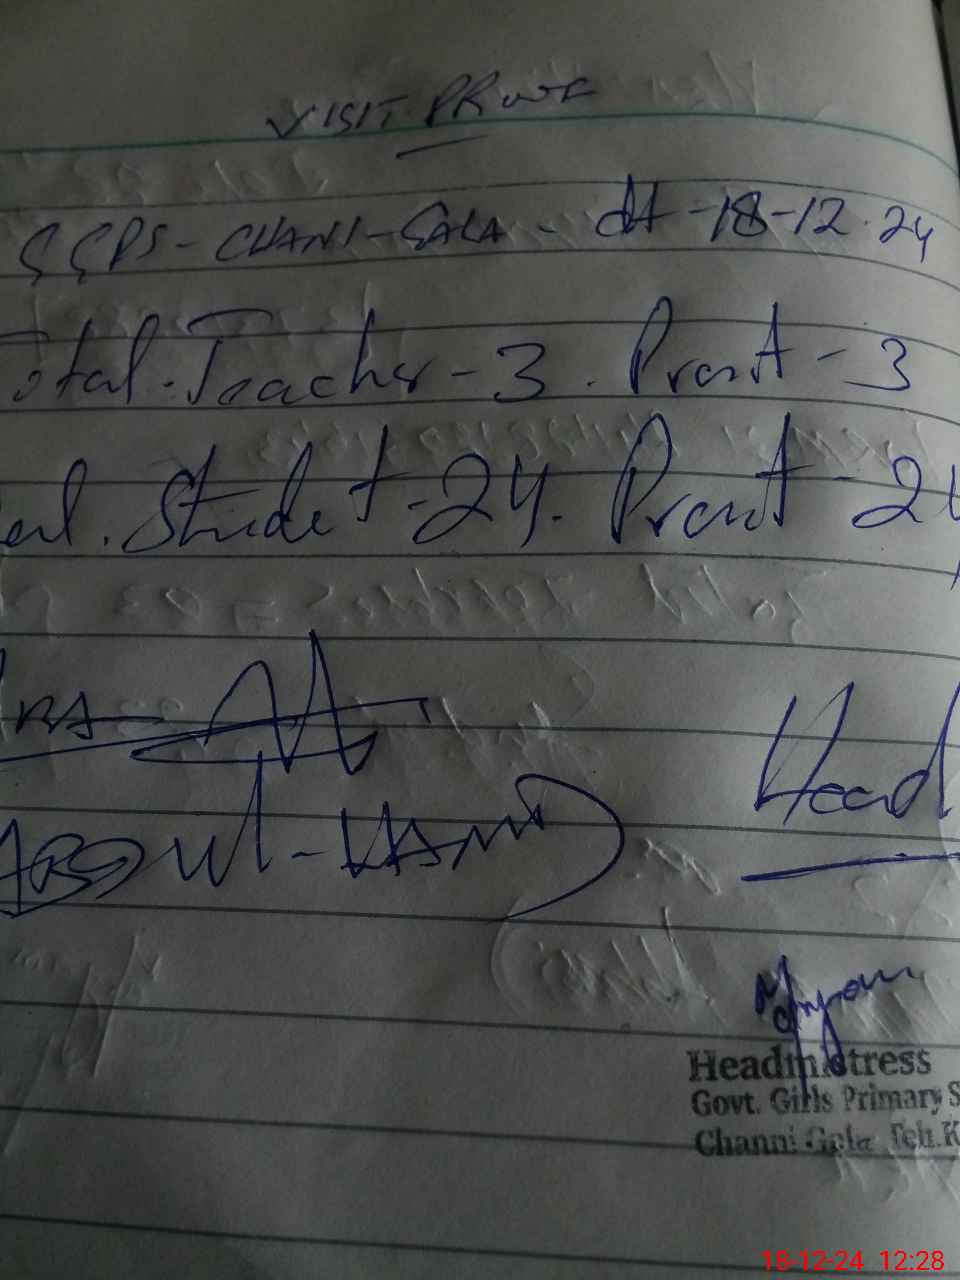 VISIT PROOF
GGPS - CHANI - GALA - dt - 18-12-24
Total. Teacher - 3. Presnt - 3
Studet - 24. Presnt - 24
ABDUL - HAMID
Head
Headmistress
Govt. Girls Primary S
Channi Gala Teh. K
18-12-24 12:28